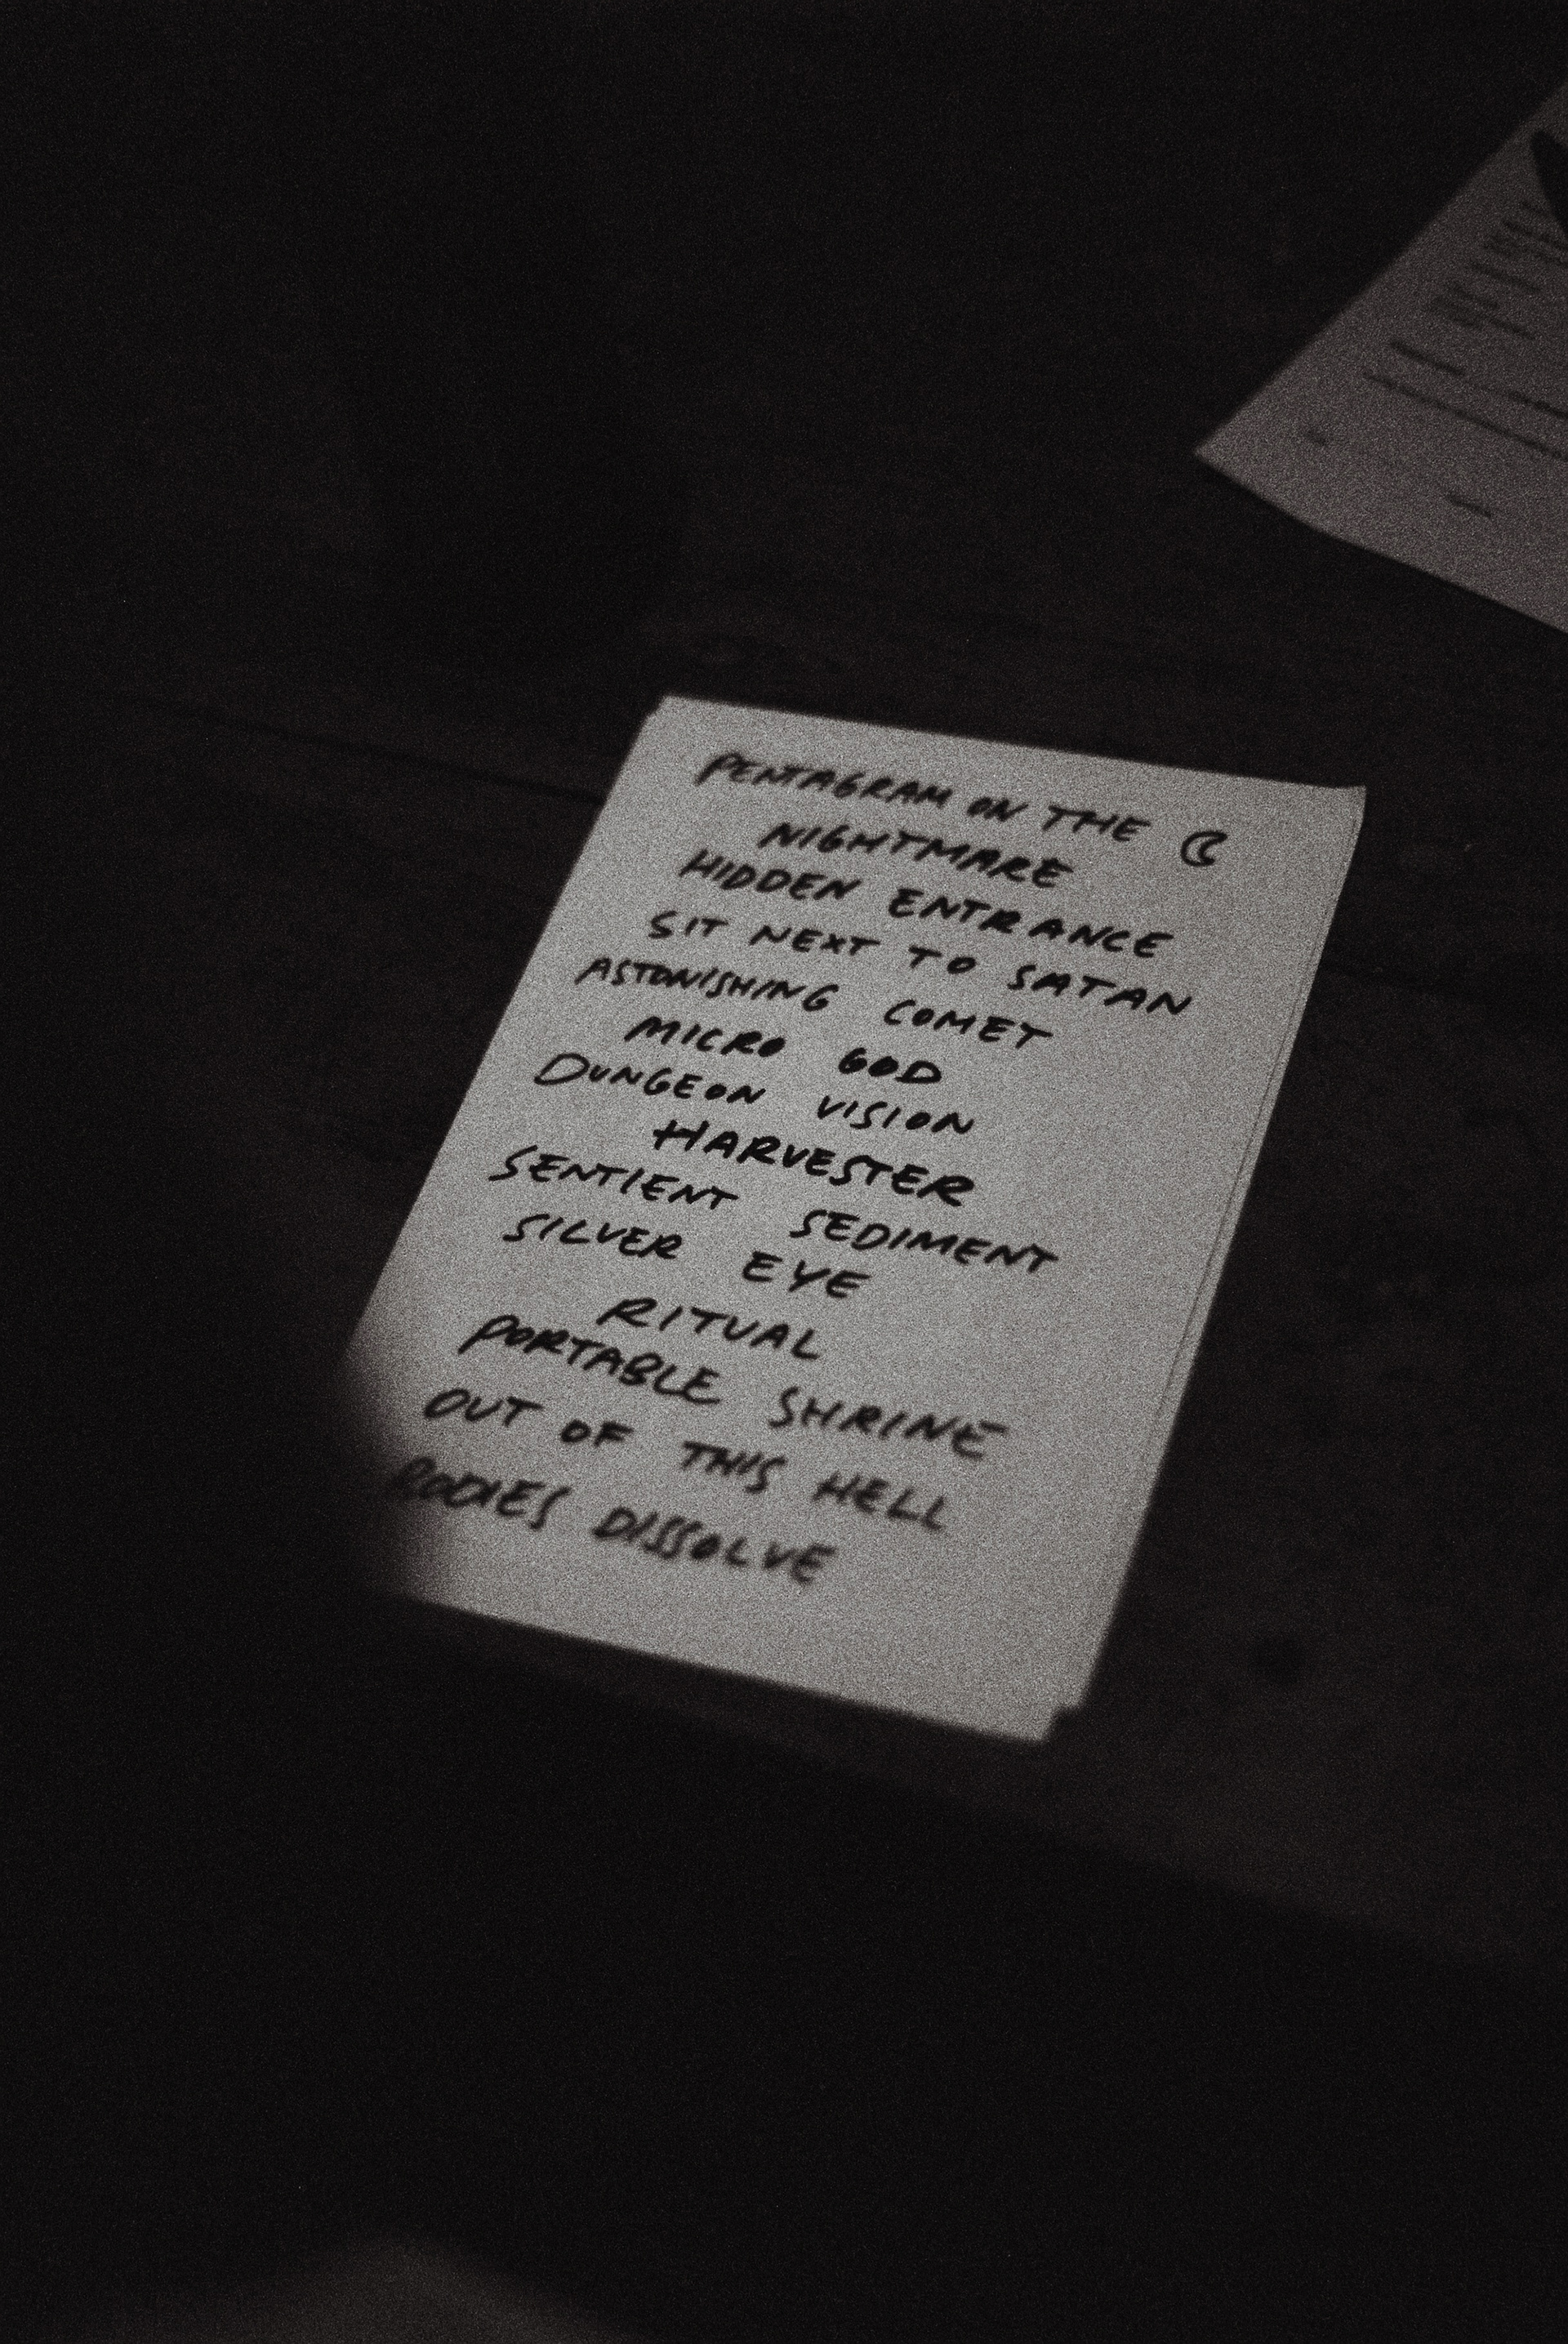 PENTAGRAM ON THE ☾
NIGHTMARE
HIDDEN ENTRANCE
SIT NEXT TO SATAN
ASTONISHING COMET
MICRO GOD
DUNGEON VISION
HARVESTER
SENTIENT SEDIMENT
SILVER EYE
RITUAL
PORTABLE SHRINE
OUT OF THIS HELL
BODIES DISSOLVE